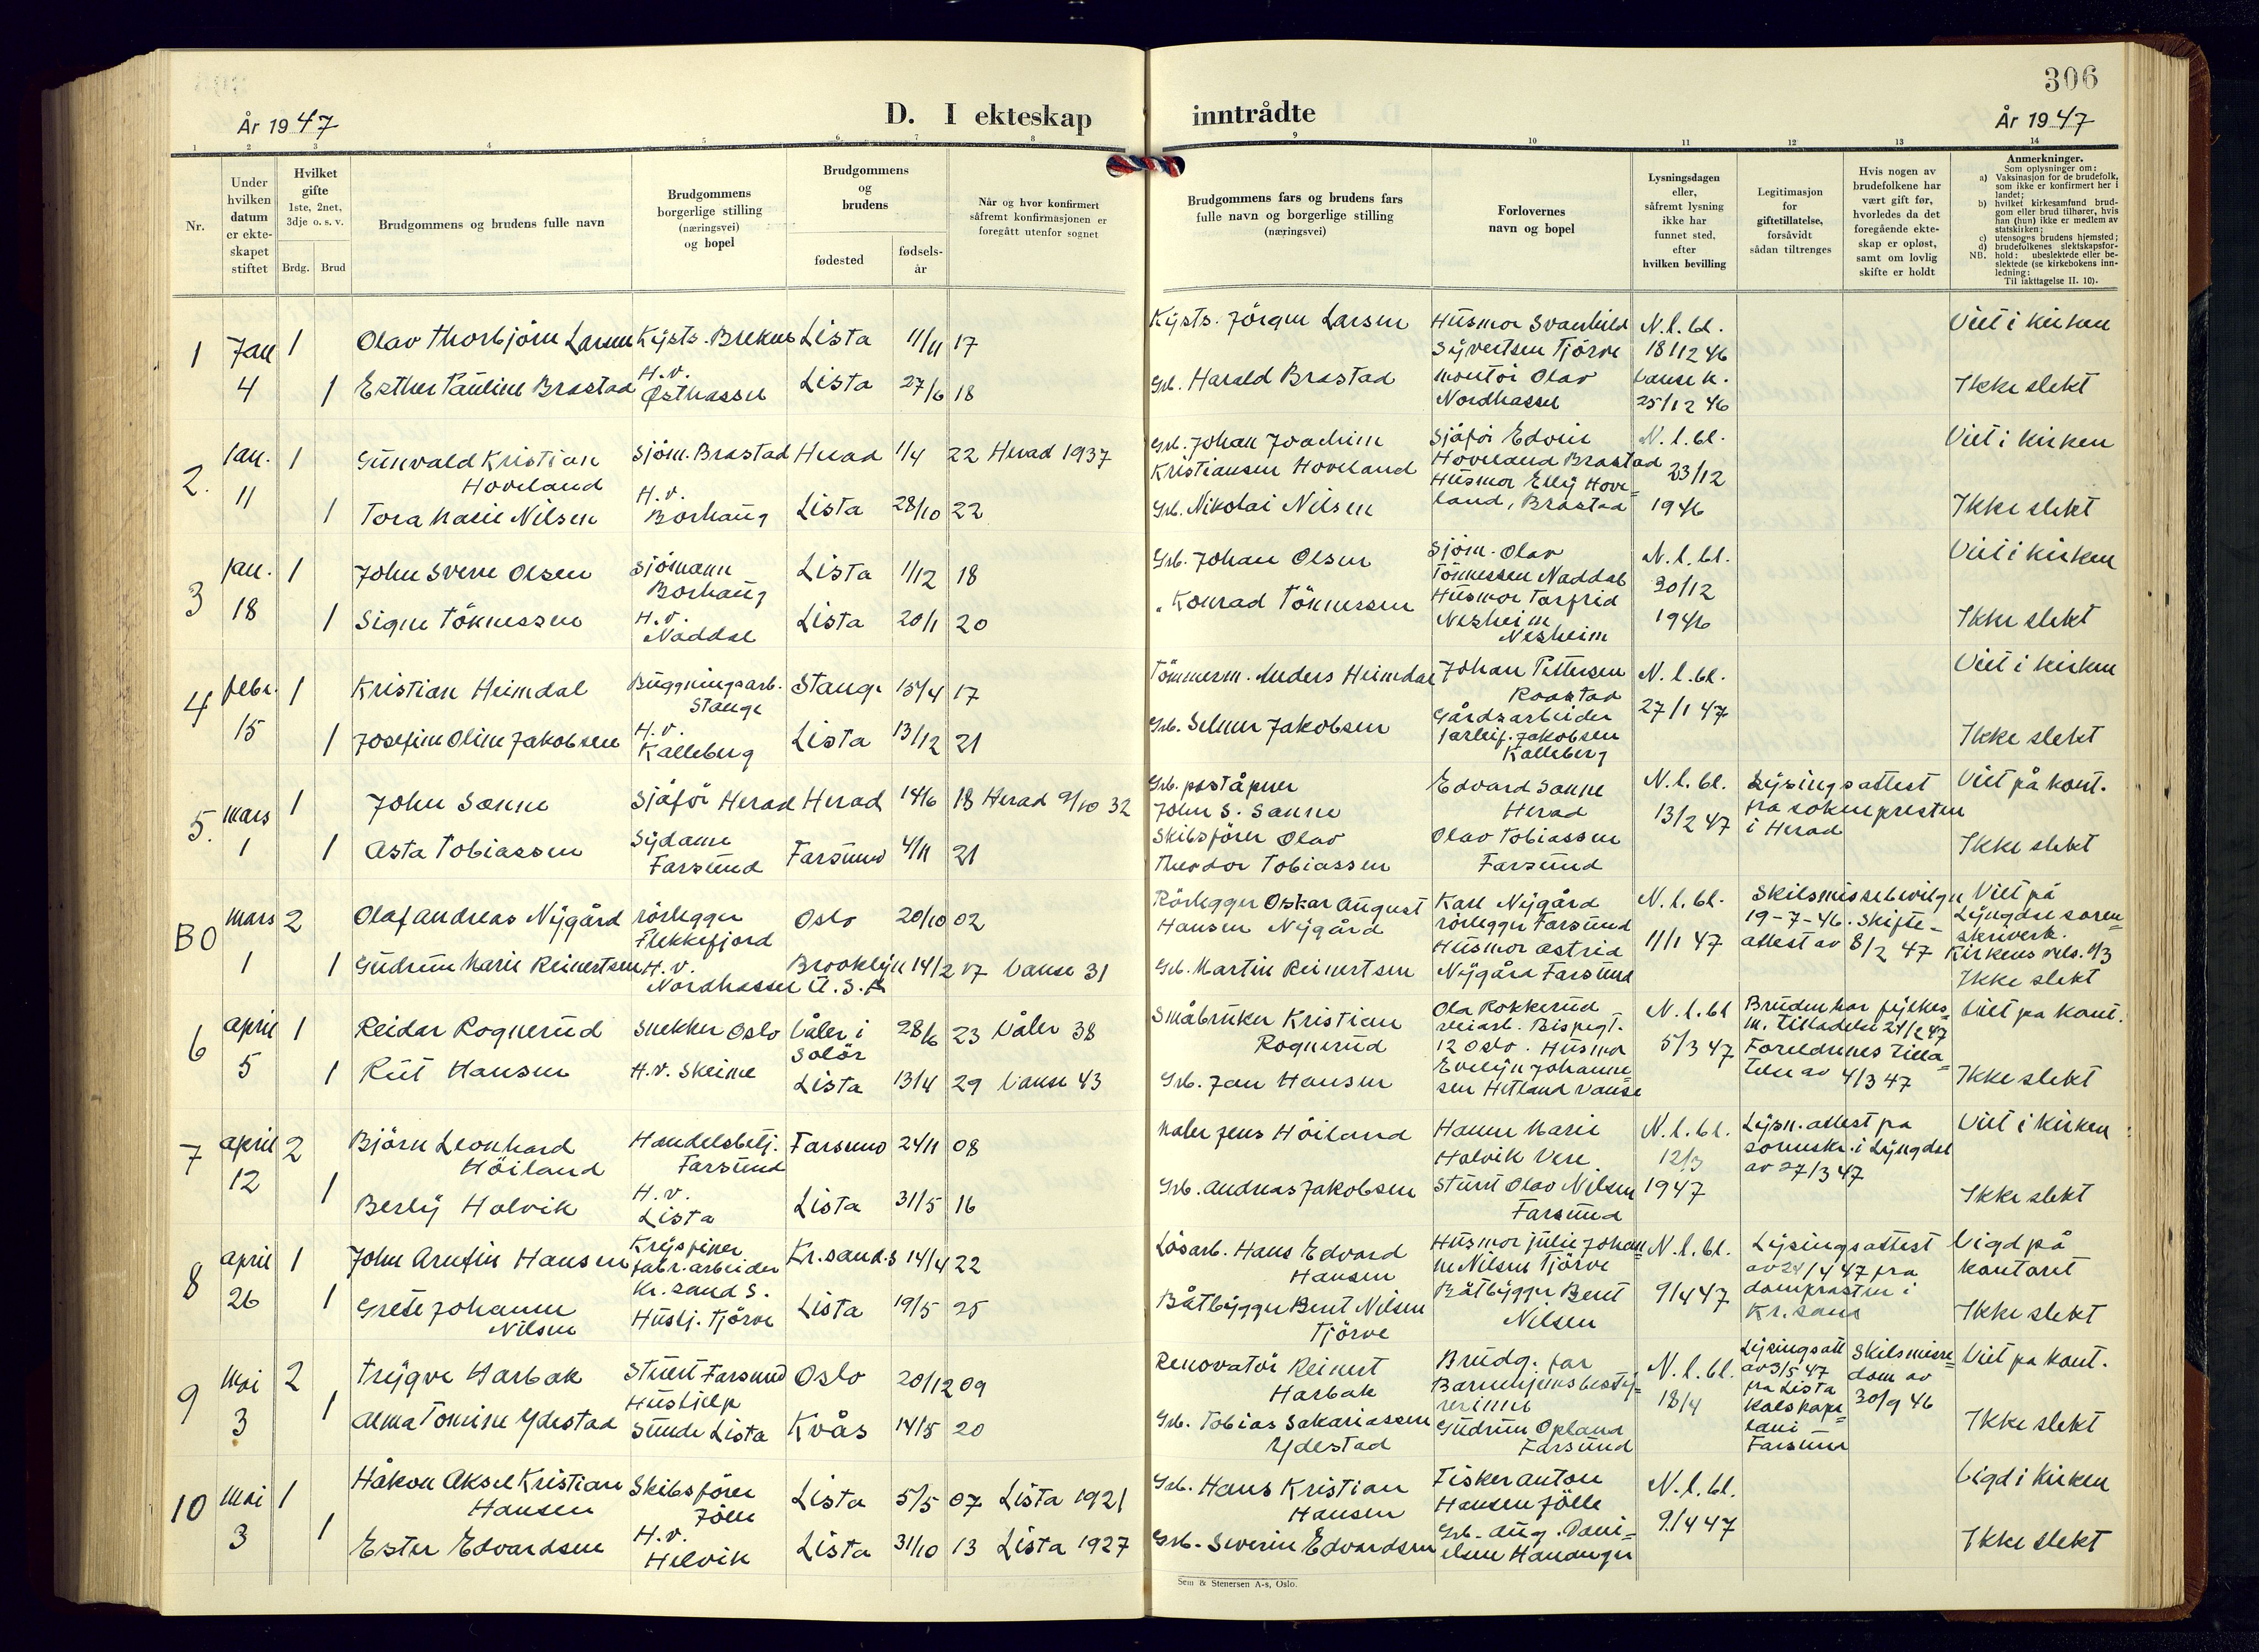 306
År 1947
D. I ekteskap
inntrådte
År 1947
1 2 3 4 5 6 7 8 9 10 11 12 13 14
Nr.
Under hvilken datum er ekte- skapet stiftet
Hvilket gifte 1ste, 2net, 3dje o. s. v.
Brdg. Brud
Brudgommens og brudens fulle navn
Brudgommens borgerlige stilling (næringsvei) og bopel
Brudgommens og brudens
fødested
fødsels- år
Når og hvor konfirmert såfremt konfirmasjonen er foregått utenfor sognet
Brudgommens fars og brudens fars fulle navn og borgerlige stilling (næringsvei)
Forlovernes navn og bopel
Lysningsdagen eller, såfremt lysning ikke har funnet sted, efter hvilken bevilling
Legitimasjon for giftetillatelse, forsåvidt sådan tiltrenges
Hvis nogen av brudefolkene har vært gift før, hvorledes da det foregående ekte- skap er opløst, samt om lovlig skifte er holdt
Anmerkninger.
Som oplysninger om:
a) Vaksinasjon for de brudefolk, som ikke er konfirmert her i landet;
b) hvilket kirkesamfund brud- gom eller brud tilhører, hvis han (hun) ikke er medlem av statskirken;
c) utensogns brudens hjemsted;
d) brudefolkenes slektskapsfor- hold: ubeslektede eller be- slektede (se kirkebokens inn- ledning:
NB. Til iakttagelse II. 10).
1 Jan 4 1 Olav Thorbjörn Larsen Kysts. Brekne Lista 11/11 17
1 Esther Pauline Brastad H.v. Østhassel Lista 27/6 18
Kysts. Jörgen Larsen
Grb. Harald Brastad
Husmor Svanhild Syvertsen Tjörve
montör Olav Nordhassel
N.l.bl. 18/12 46
Vanse k. 25/12 46
Viet i kirken
Ikke slekt
2. Jan. 11 1 Gunvald Kristian Hoveland Sjöm. Brastad Herad 1/4 22 Herad 1937
1 Tora Marie Nilsen H.v. Borhaug Lista 28/10 22
Grb. Johan Joachim Kristiansen Hoveland
Grb. Nikolai Nilsen
Sjåför Edvin Hoveland Brastad
Husmor Elly Hove- land, Brastad
N.l.bl. 23/12 1946
Viet i kirken
Ikke slekt
3 Jan. 18 1 John Sverre Olsen Sjömann Borhaug Lista 1/12 18
1 Signe Tönnessen H.v. Naddal Lista 20/1 20
Grb. Johan Olsen
" Konrad Tönnessen
Sjöm. Olav Tönnessen Naddal
Husmor Torfrid Nesheim Nesheim
N.l.bl. 30/12 1946
Viet i kirken
Ikke slekt
4 febr. 15 1 Kristian Heimdal Bygningsarb. Stange Stange 15/4 17
1 Josefine Oline Jakobsen H.v. Kalleberg Lista 13/12 21
Tömmerm. Anders Heimdal
Grb. Selmer Jakobsen
Johan Pettersen Raastad
Gårdsarbeider Jarleif Jakobsen Kalleberg
N.l.bl. 27/1 47
Viet i kirken
Ikke slekt
5. mars 1 1 John Sanne Sjåför Herad Herad 14/6 18 Herad 9/10 32
1 Asta Tobiassen Sydame Farsund Farsund 4/11 21
Grb. poståpner John S. Sanne
Skibsförer Olav Theodor Tobiassen
Edvard Sanne Herad
Olav Tobiassen Farsund
N.l.bl. 13/2 47
Lysingsattest fra soknepresten i Herad
Viet på kont.
Ikke slekt
B0 mars 1 2 Olaf Andreas Nygård rörlegger Flekkefjord Oslo 20/10 02
1 Gudrun Marie Reinertsen H.v. Nordhassel Brooklyn U.S.A 14/2 17 Vanse 31
Rörlegger Oskar August Hansen Nygård
Grb. Martin Reinertsen
Karl Nygård rörlegger Farsund
Husmor Astrid Nygård Farsund
N.l.bl. 11/1 47
Skilsmissebevilgn 19-7-46. Skifte- attest av 8/2 47
Viet på Lyngdal soren- skriverk. Kirkens vels. 1/3
Ikke slekt
6 april 5 1 Reidar Rognerud Snekker Oslo Våler i Solör 28/6 23 Våler 38
1 Rut Hansen H.v. Skeime Lista 13/4 29 Vanse 43
Småbruker Kristian Rognerud
Grb. Jan Hansen
Ola Rokkerud veiarb. Bispegt. 12 Oslo. Husmor Evelyn Johanne- sen Hetland Vanse
N.l.bl 5/3 47
Bruden har fylkes- m. tilladelse 21/2 47 Foreldrenes tilla- telse av 4/3 47
Viet på kont.
Ikke slekt
7 april 12 2 Björn Leonhard Höiland Handelsbetj. Farsund Farsund 24/11 08
1 Berly Halvik H.v. Lista Lista 31/5 16
Maler Jens Höiland
Grb. Andreas Jakobsen
Hanne Marie Halvik Vere
Stuert Olav Nilsen Farsund
N.l.bl. 12/3 1947
Lysn. attest på sorenskr. i Lyngdal av 27/3 47
Viet i kirken
Ikke slekt
8 april 26 1 John Arnfin Hansen Kryssfiner fabr. arbeider Kr.sand S. Kr.sand.S 14/4 22
1 Grete Johanne Nilsen Huslj. Tjörve Lista 19/5 25
Lösarb. Hans Edvard Hansen
Båtbygger Bent Nilsen Tjörve
Husmor Julie Johan- ne Nilsen Tjörve
Båtbygger Bent Nilsen
N.l.bl. 9/4 47
Lysingsattest av 24/4 47 fra domprosten i Kr.sand
Vigd på kontoret
Ikke slekt
9 Mai 3 2 Trygve Harbak Stuert Farsund Oslo 20/12 09
1 Alma Tomine Ydestad Hushjelp Sunde Lista Kvås 14/5 20
Renovatör Reinert Harbak
Grb. Tobias Sakariassen Ydestad
Brudg. far
Barnehjemsbesty- rerinne Gudrun Opland Farsund
N.l.bl. 18/4
Lysingsatt av 3/5 47 fra Lista
Farsund
Skilsmisse- dom av 30/9 46
Viet på kont.
Ikke slekt
10 Mai 3 1 Håkon Aksel Kristian Hansen Skibsförer Jölle Lista 5/5 07 Lista 1921
1 Ester Edvardsen H.v. Helvik Lista 31/10 13 Lista 1927
Grb. Hans Kristian Hansen
Grb. Severin Edvardsen
Fisker Anton Hansen Jölle
Grb. Aug. Dani- elsen Hananger
N.l.bl. 9/4 47
Vigd i kirken
Ikke slekt
Sem & Stenersen A-s, Oslo.